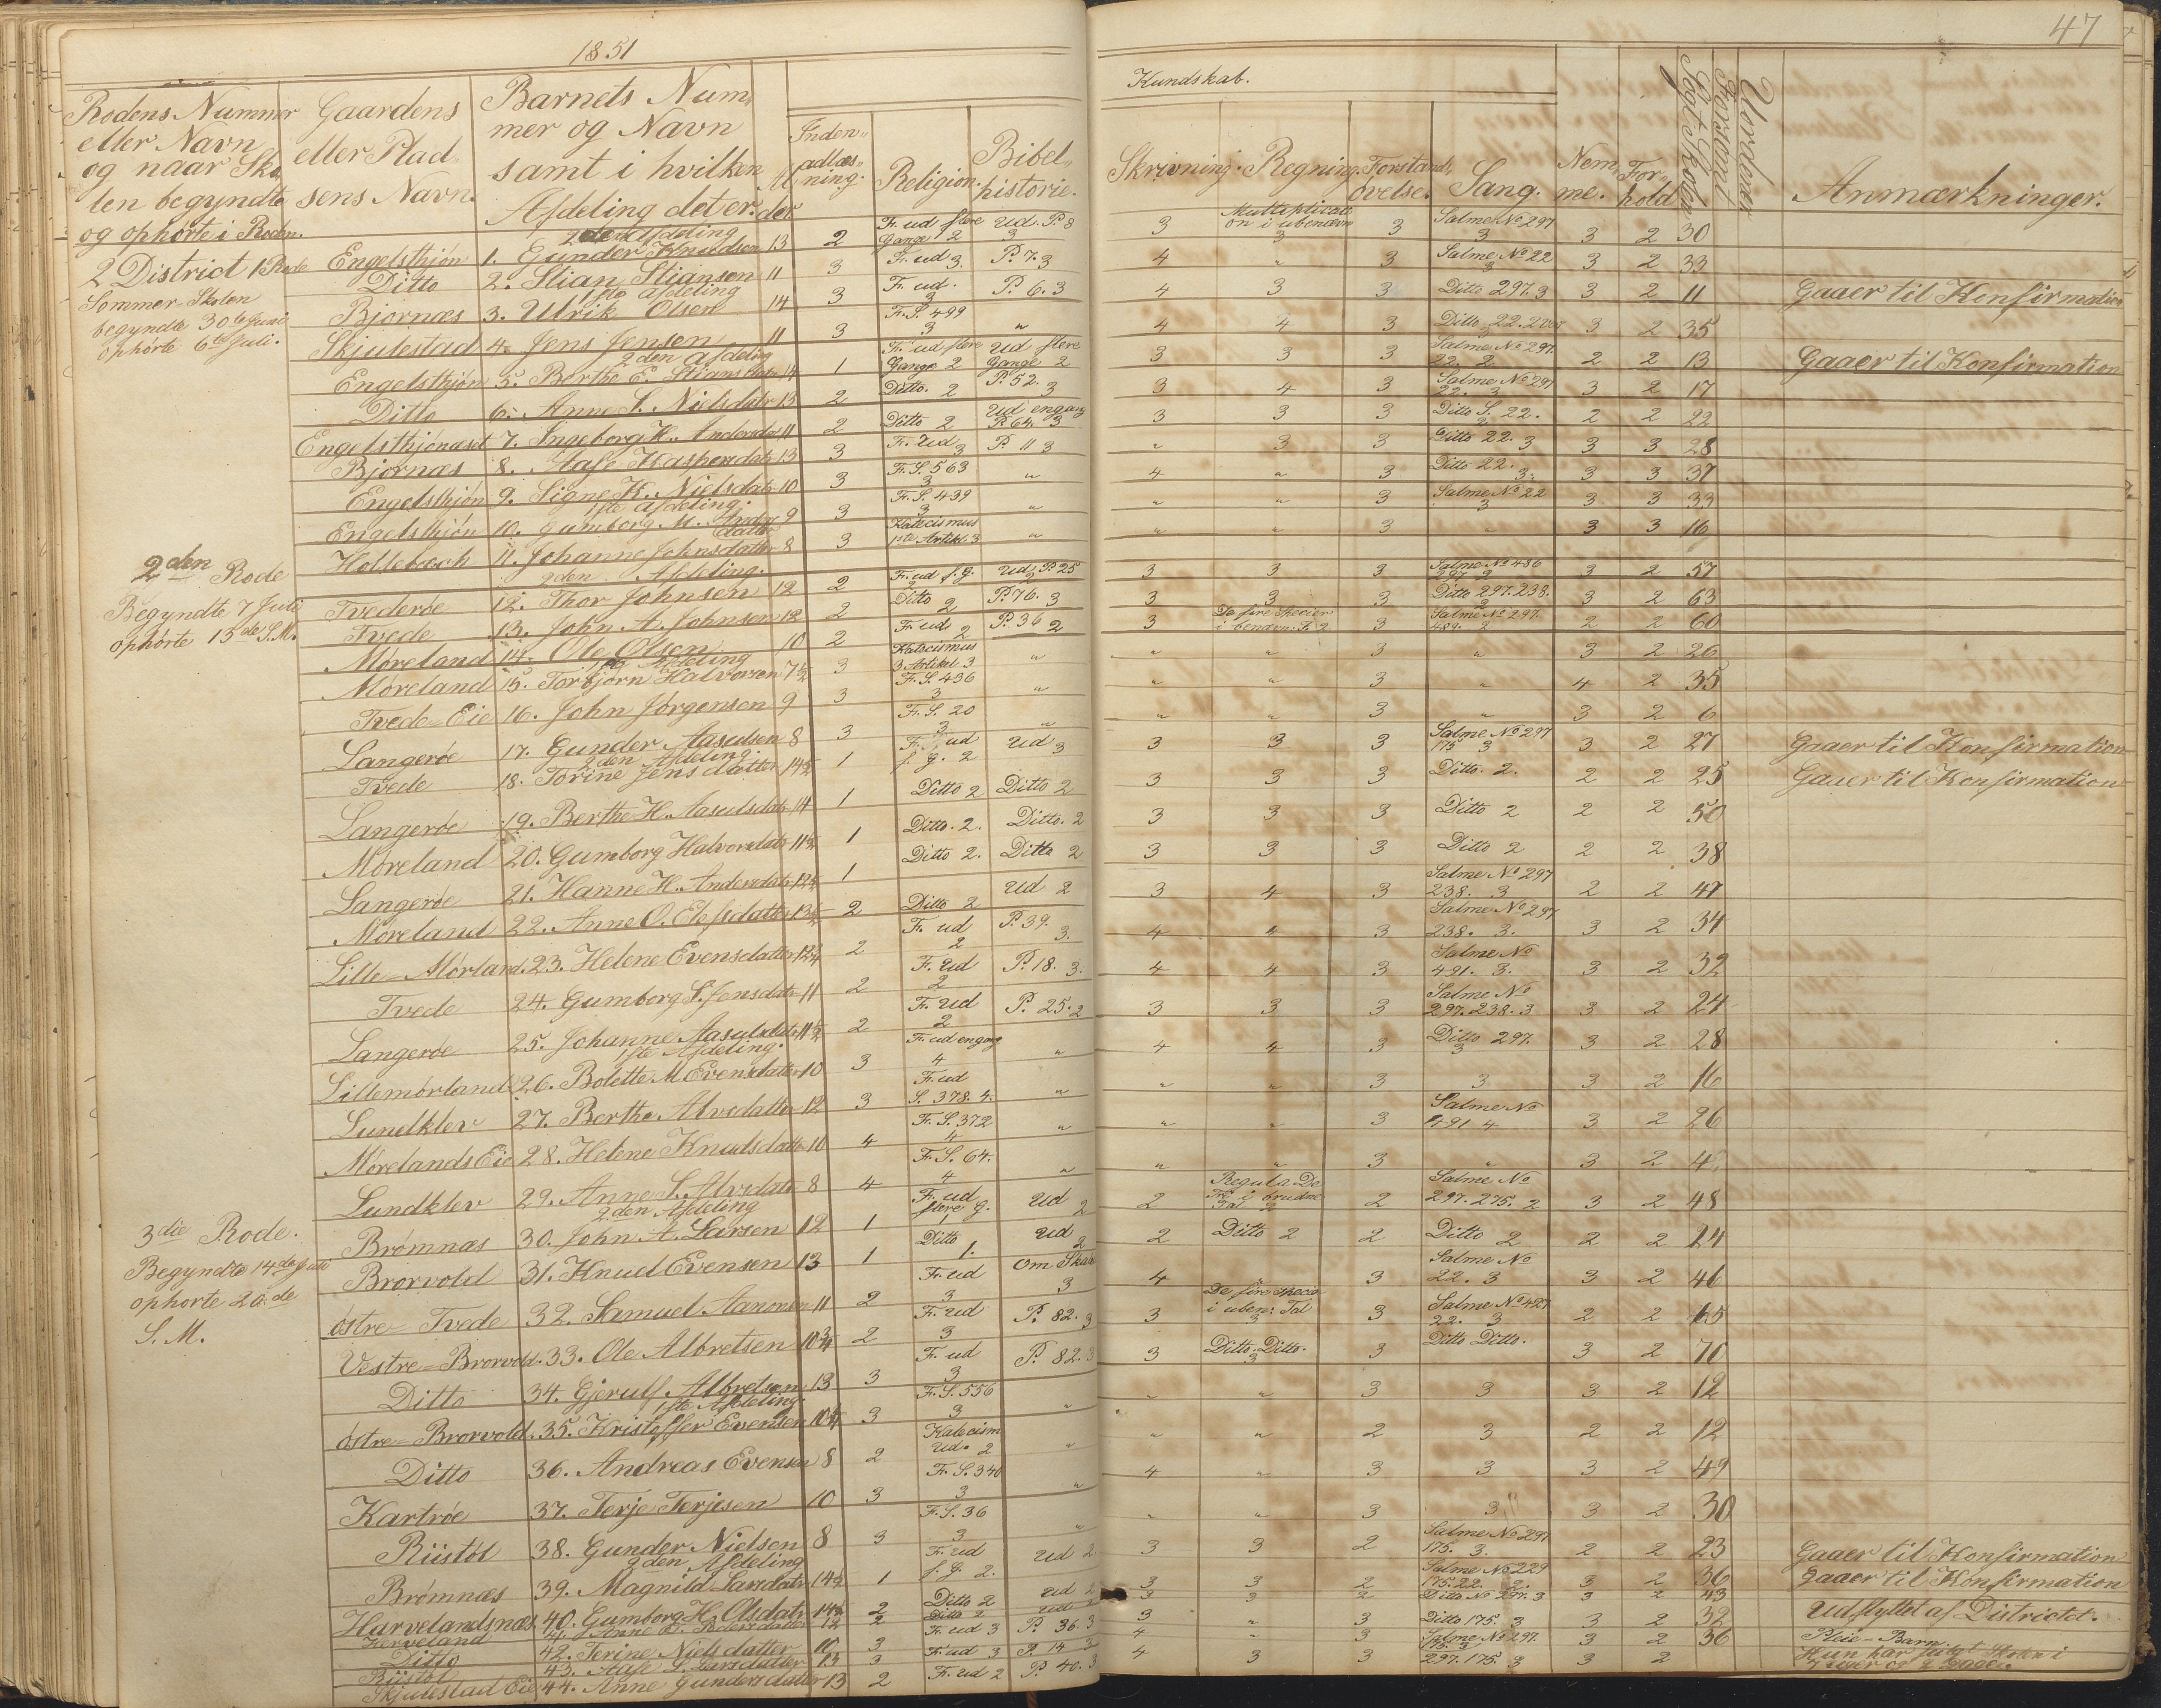 1851
47
Rodens Nummer
eller Navn
og naar Sko
len begyndte
og ophörte i Roden.
Gaardens
eller Plad-
sens Navn.
Barnets Num
mer og Navn
samt i hvilken
Afdeling det er.
Al
der
Inden-
adlæs-
ning.
Religion.
Bibel-
historie.
Kundskab.
Skrivning. Regning. Forstands
övelse. Sang. Nem
me. For-
hold
Sögt Skolen
Forsömt
Anmærkninger.
2 District 1 Rode
Sommer Skolen
begyndte 30te Juni
ophörte 6te Juli.
2den Afdeling
Engelsthjön 1. Gunder Knudsen 13 2 F. ud flere Gange 2 Ud. P. 8 3 3 Multiplication i ubenævn 3 3 Salme No 297 3 3 2 30
Ditto 2. Stian Stiansen 11 3 F. ud 3. P. 7. 3 4 " 3 Salme No 22 3 3 2 33
1ste Afdeling
Bjornæs 3. Ulrik Olsen 14 3 F. ud. 3 P. 6. 3 4 3 3 Ditto 297. 3 3 2 11 Gaaer til Konfirmation
Skjulestad 4. Jens Jensen 11 3 F. S. 499 3 " 4 4 3 Ditto 22. 3 2 35
2den Afdeling
Engelsthjön 5. Berthe E. Stiansdatr 14 1 F. ud flere Gange 2 Ud flere Gange 2 3 3 3 Salme No 297. 22. 2 2 2 13 Gaaer til Konfirmation
Ditto 6. Anne S. Nielsdatr 13 2 Ditto. 2 P. 52. 3 3 4 3 Salme No 297 22. 3 3 2 17
Engelsthjönaset 7. Ingeborg K. Andersdatr 11 2 Ditto 2 Ud engang P. 64. 3 3 3 3 Ditto S. 22. 2 2 22
Bjornæs 8. Aase Kaspersdatr 13 3 F. Ud 3 P. 11 3 " 3 3 Ditto 22. 3 3 3 28
Engelsthjön 9. Signe K. Nielsdatr 10 3 F. S. 563 3 " 4 " 3 Ditto 22. 3. 3 3 37
1ste Afdeling.
Engelsthjön 10. Gumborg M. Andrs datter 9 3 F. S. 439 3 " " " 3 Salme No 22 3 3 3 33
Hollebæch 11. Johanne Johnsdatter 8 3 Katecismus 1ste Artikl 3 " " " 3 " 3 3 16
2den Rode
Begyndte 7 Juli
ophörte 13de S.M.
2den Afdeling.
Tvederöe 12. Thor Johnsen 12 2 F. ud f. g. 2 Ud. P. 25 2 3 3 3 Salme No 486 297 2 3 2 57
Tvede 13. John A. Johnsen 12 2 Ditto 2 P. 76. 3 3 3 3 Ditto 297. 238. 2 3 2 63
Möreland 14. Ole Olsen 10 2 F. ud 2 P. 36 2 3 De fire Specier i benævn. T. 2 3 Salme No 297. 489. 2 2 2 60
1ste Afdeling
Möreland 15. Torbjörn Halvorsen 7½ 3 Katecismus 3 Artikel 3 " " " 3 " 3 2 26
Tvede-Eie 16. John Jörgensen 9 3 F. S. 436 3 " " " 3 " 4 2 35
Langeröe 17. Gunder Aasulsen 8 3 F. S. 20 3 " " " 3 " 3 2 6
2den Afdeling.
Tvede 18. Torine Jensdatter 14½ 1 F. ud f. g. 2 Ud 3 3 3 3 Salme No 297 175 3 3 2 27 Gaaer til Konfirmation
Langeröe 19. Berthe H. Aasulsdatr 14 1 Ditto 2 Ditto 2 3 3 3 Ditto. 2. 2 2 25 Gaaer til Konfirmation
Möreland 20. Gumborg Halvorsdatr 11½ 1 Ditto. 2. Ditto. 2 3 3 3 Ditto 2 2 2 50
Langeröe 21. Hanne H. Andersdatr 12½ 1 Ditto 2. Ditto 2 3 3 3 Ditto 2 2 2 38
Möreland 22. Anne O. Elefsdatter 13½ 2 Ditto 2 Ud 2 3 4 3 Salme No 297 238. 3 2 2 47
Lille-Mörland. 23. Helene Evensdatter 12¾ 2 F. ud 2 P. 39. 3. 4 " 3 Salme No 297 238. 3. 3 2 34
Tvede 24. Gumborg S. Jensdatr 11 2 F. Ud 2 P. 18. 3. 4 4 3 Salme No 491. 3. 3 2 32
Langeröe 25. Johanne Aasulsdatr 11½ 2 F. Ud 2 P. 25. 2 3 3 3 Salme No 297. 238. 3 3 2 24
1ste Afdeling.
Lillemörland 26. Bolette M Evensdatter 10 3 F. ud engang 4 " 4 4 3 Ditto 297. 3 3 2 28
Lundklev 27. Berthe Alvsdatter 12 3 F. ud S. 378. 4. " " " 3 3 3 2 16
Mörelands Eie 28. Helene Knudsdatr 10 4 F. S. 372 4 " " " 3 Salme No 491 4 3 2 26
Lundklev 29. Anne S. Alvsdatr 8 4 F. S. 64. 4 " " " 3 " 3 2 4
3die Rode.
Begyndte 14de Juli
ophorte 20de
S. M.
2den Afdeling
Brömnæs 30. John A. Larsen 12 1 F. ud flere g. 1 Ud 2 2 Regula De Tri i brudne Tal 2 2 Salme No 297. 275. 2 3 2 48
Brorvold 31. Knud Evensen 13 1 Ditto 1. Ud 2 2 Ditto 2 2 Ditto 2 2 2 24
östre-Tvede 32. Samuel Aanonsen 11 2 F. ud 3 Om Skab 3 4 " 3 Salme No 22. 3 3 2 46
Vestre-Brorvold. 33. Ole Albretsen 10¾ 2 F. Ud 3 P. 82. 3 3 De fire Specier i uben: Tal 3 3 Salme No 427 22. 3 2 2 65
Ditto 34. Gjerulf Albretsen 13 3 F. ud 3 P. 82. 3 3 Ditto. Ditto. 3 3 Ditto Ditto. 3 2 70
1ste Afdeling.
östre-Brorvold. 35. Kristoffer Evensen 10¼ 3 F. S. 556 3 " " " 3 3 3 2 12
Ditto 36. Andreas Evensen 8 2 Katecism Ud. 2 " " " 2 3 2 2 12
Kartröe 37. Terje Terjesen 10 3 F. S. 340 3 " 4 " 3 3 3 2 49
Riistöl 38. Gunder Nielsen 8 3 F. S. 36 3 " " " 3 3 3 2 30
2den Afdeling
Brömnæs 39. Magnild Larsdatr 14½ 1 F. ud f. g. 2. Ud 2. 3 3 2 Salme No 297 175. 3. 2 2 23 Gaaer til Konfirmation
Harvelandsnæs 40. Gumborg H. Olsdatr 14½ 2 Ditto 2 Ud 2 3 3 2 Salme No 229 175. 22. 2. 3 2 36 Gaaer til Konfirmation
41. Anne 12 2 Ditto 2 Ud 2 3 3 2 Ditto No 297. 3 3 2 43
Ditto 42. Terine Nielsdatter 10 3 F. ud 3 P. 36. 3 3 " 3 Ditto 175. 3 3 2 32 Udflyttet af Districtet.
Riistöl 43. Aase L. Larsdatter 13 3 F. ud 3 P. 14 3 4 " 3 Salme No 297. 175. 3 3 2 36 Pleie-Barn.
Skjulestad Eie 44. Anne Gundersdatter 13 2 F. ud 2 P. 40. 3 4 3 3 297. 175. 3 3 2 Hun har sögt Skolen i